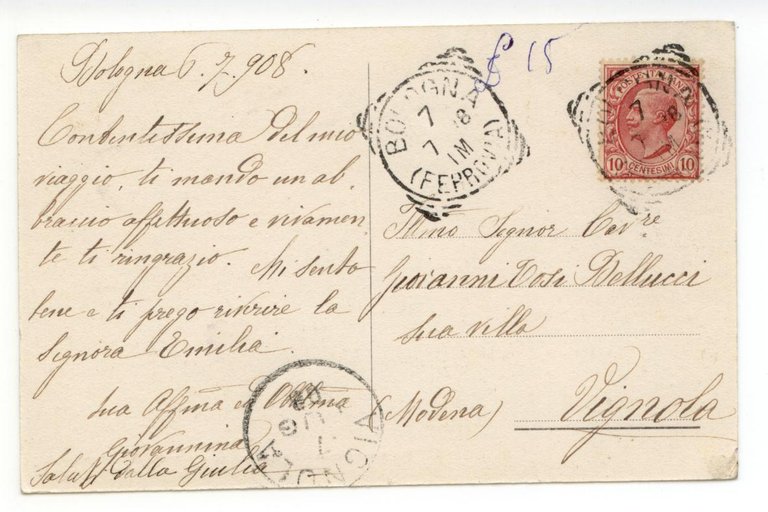 Bologna 6. 7. 908.
Contentissima del mio
viaggio, ti mando un ab-
braccio affettuoso e vivamen-
te ti ringrazio. Mi sento
bene e ti prego riverire la
Signora Emilia.
tua Affma ed Obbma
Giovannina
Saluti dalla Giulia
£ 15
BOLOGNA
7 7 8
1M
(FERROVIA)
POSTE ITALIANE
10 CENTESIMI 10
Illmo Signor Cavre
Giovanni Tosi Bellucci
Sua villa
(Modena) Vignola
VIGNOLA